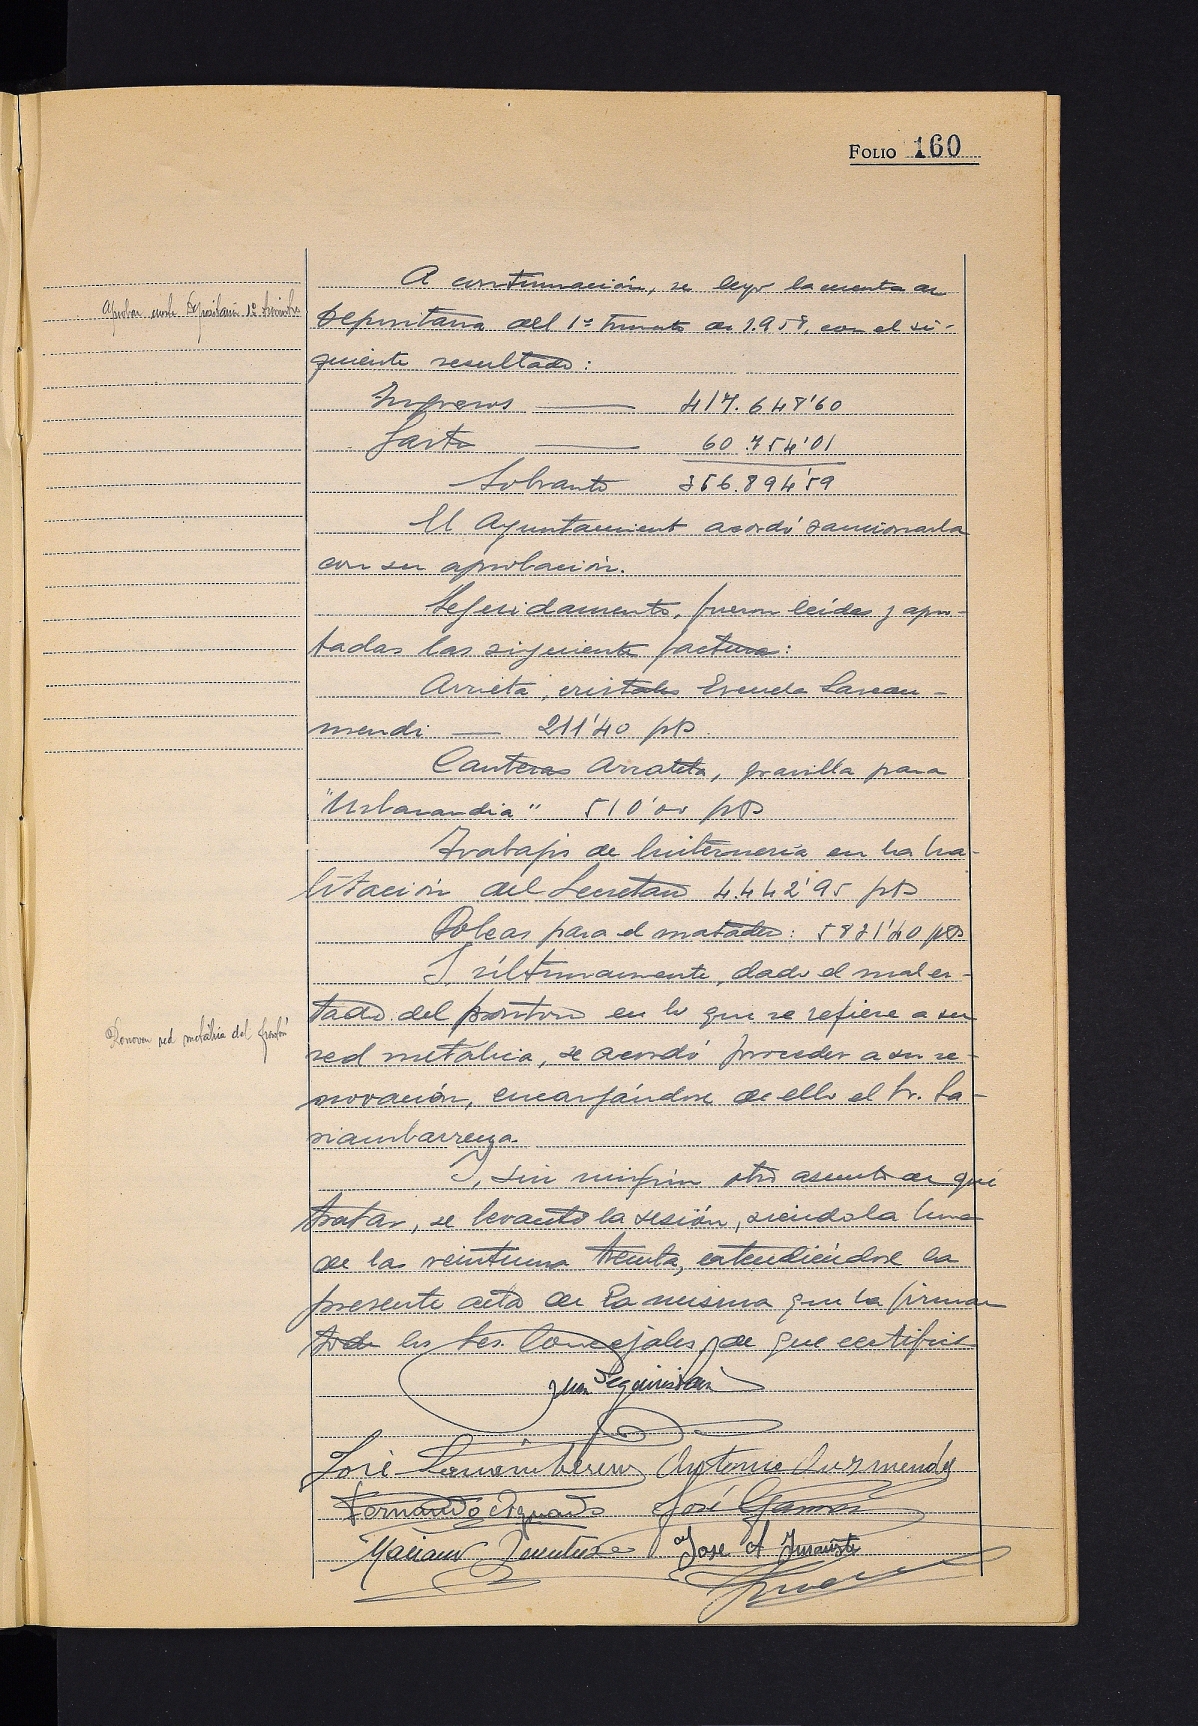 FOLIO 160
A continuación, se leyó la cuenta de
Aprobar cuenta Depositaría 1er trimestre
Depositaría del 1er trimestre de 1.958, con el si-
guiente resultado:
Ingresos — 417.648'60
Gastos — 60.754'01
Sobrante 356.894'59
El Ayuntamiento acordó sancionarla
con su aprobación.
Seguidamente, fueron leídas y apro-
badas las siguientes facturas:
Arrieta, cristales Escuela Lascau-
mendi — 211'40 pts.
Canteras Arrateta, gravilla para
"Urbarandia" 510'00 pts
Trabajos de linternería en la ha-
bitación del Secretario 4.442'95 pts
Poleas para el matadero: 5821'40 pts
Y, últimamente, dado el mal es-
tado del frontón en lo que se refiere a su
Renovar red metálica del frontón
red metálica, se acordó proceder a su re-
novación, encargándose de ello el Sr. La-
niambarrena.
Y, sin ningún otro asunto de qué
tratar, se levantó la sesión, siendo la hora
de las veintiuna treinta, extendiéndose la
presente acta de la misma que la firman
todos los Sres. Concejales, de que certifico
Juan Seguiristain
José Laniambarrena Antonio Aurmendi
Fernando Aguado José Gamón
Mariano José A. Irurarizta